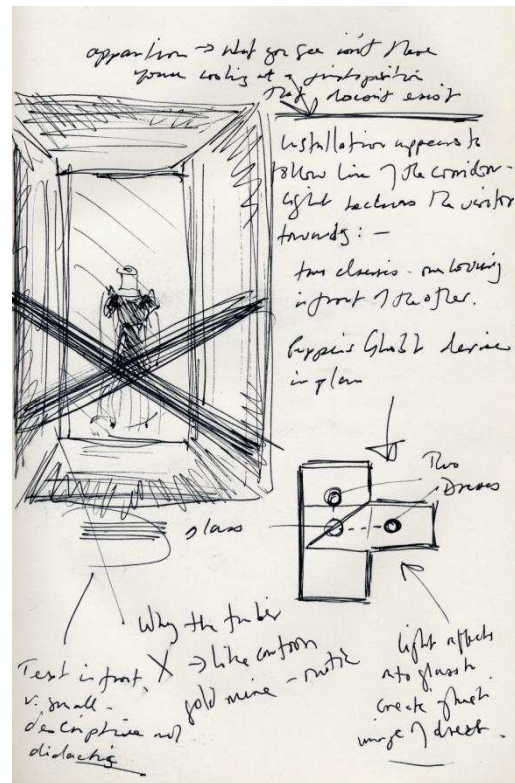 apparition → what you see isn't there
you're looking at a juxtaposition
that doesn't exist
Installation appears to
follow line of the corridor -
light beckons the visitor
towards : -
two dresses - one hovering
in front of the other.
Peppers Ghost device
in plan
Two
Dresses
glass
Why the timber
X → like cartoon
gold mine - rustic
Text in front,
v. small -
descriptive not
didactic
light reflects
onto glass to
create ghost
image of dress.